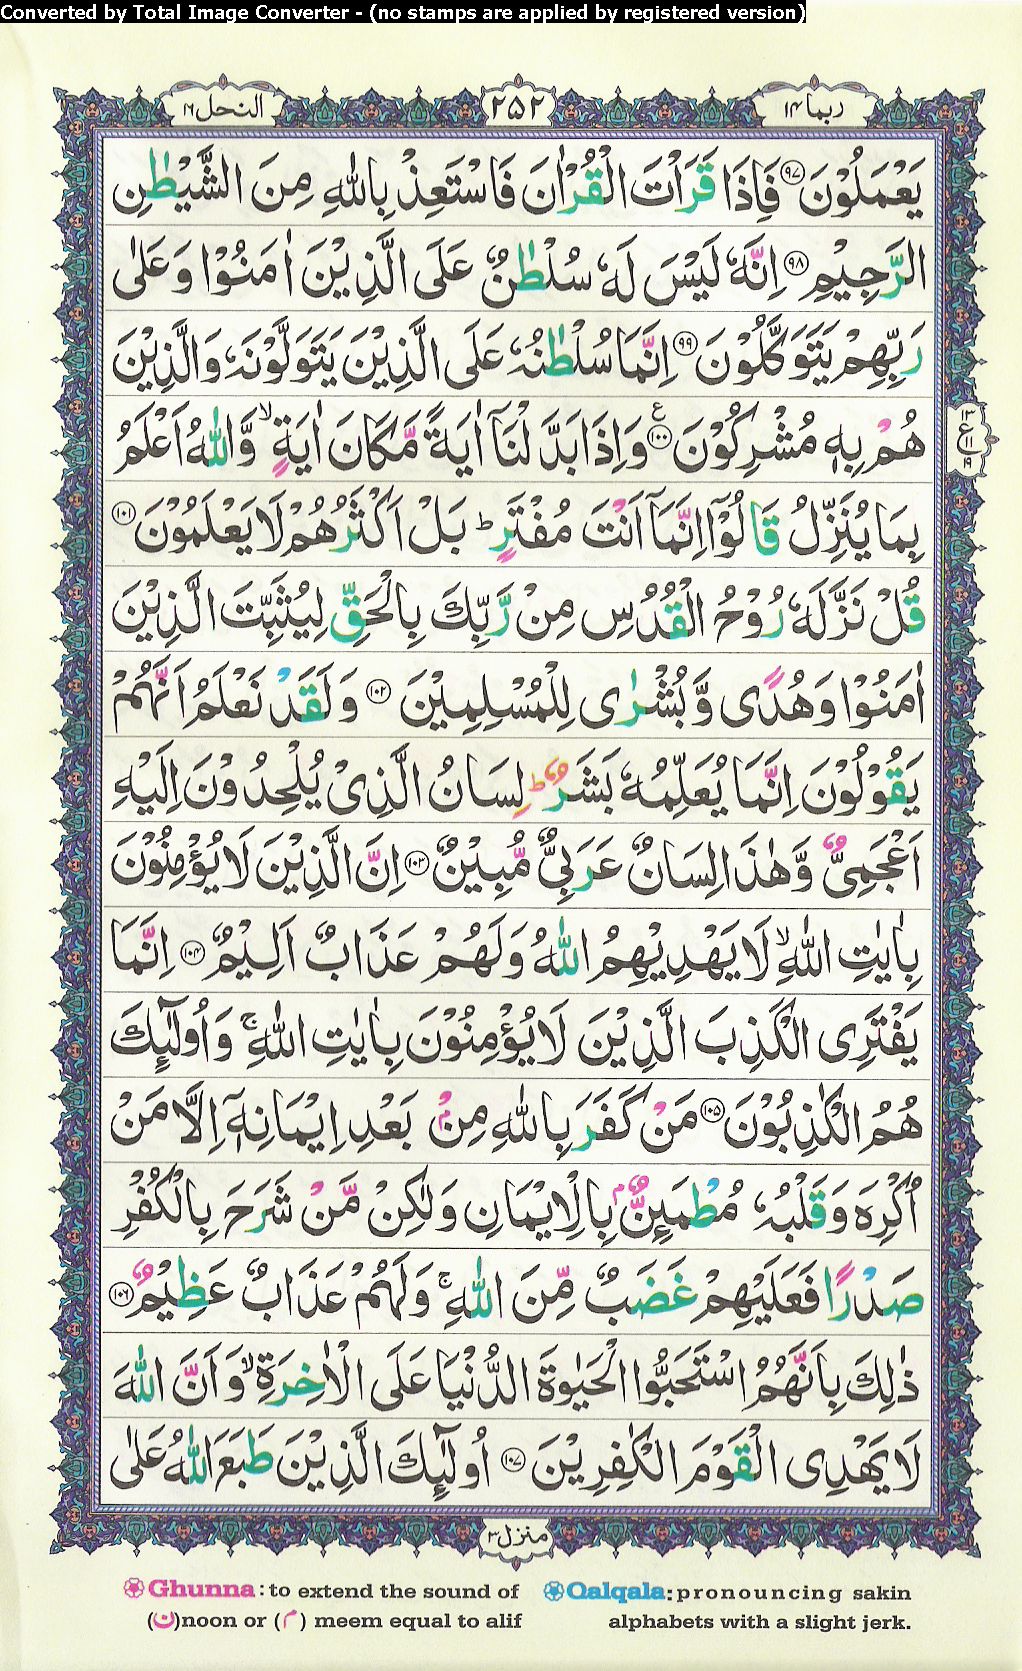 Converted by Total Image Converter - (no stamps are applied by registered version)
ربما ١٤ ٢٥٢ النحل ١٦
يَعْمَلُوْنَ ﴿٩٧﴾ فَاِذَا قَرَاْتَ الْقُرْاٰنَ فَاسْتَعِذْ بِاللّٰهِ مِنَ الشَّيْطٰنِ
الرَّجِيْمِ ﴿٩٨﴾ اِنَّهٗ لَيْسَ لَهٗ سُلْطٰنٌ عَلَى الَّذِيْنَ اٰمَنُوْا وَعَلٰى
رَبِّهِمْ يَتَوَكَّلُوْنَ ﴿٩٩﴾ اِنَّمَا سُلْطٰنُهٗ عَلَى الَّذِيْنَ يَتَوَلَّوْنَهٗ وَالَّذِيْنَ
هُمْ بِهٖ مُشْرِكُوْنَ ﴿١٠٠﴾ ع وَاِذَا بَدَّلْنَاۤ اٰيَةً مَّكَانَ اٰيَةٍ ۙ وَّاللّٰهُ اَعْلَمُ
١٣ ع ١١ ١٩
بِمَا يُنَزِّلُ قَالُوْۤا اِنَّمَاۤ اَنْتَ مُفْتَرٍ ؕ بَلْ اَكْثَرُهُمْ لَا يَعْلَمُوْنَ ﴿١٠١﴾
قُلْ نَزَّلَهٗ رُوْحُ الْقُدُسِ مِنْ رَّبِّكَ بِالْحَقِّ لِيُثَبِّتَ الَّذِيْنَ
اٰمَنُوْا وَهُدًى وَّبُشْرٰى لِلْمُسْلِمِيْنَ ﴿١٠٢﴾ وَلَقَدْ نَعْلَمُ اَنَّهُمْ
يَقُوْلُوْنَ اِنَّمَا يُعَلِّمُهٗ بَشَرٌ ؕ لِسَانُ الَّذِيْ يُلْحِدُوْنَ اِلَيْهِ
اَعْجَمِيٌّ وَّهٰذَا لِسَانٌ عَرَبِيٌّ مُّبِيْنٌ ﴿١٠٣﴾ اِنَّ الَّذِيْنَ لَا يُؤْمِنُوْنَ
بِاٰيٰتِ اللّٰهِ ۙ لَا يَهْدِيْهِمُ اللّٰهُ وَلَهُمْ عَذَابٌ اَلِيْمٌ ﴿١٠٤﴾ اِنَّمَا
يَفْتَرِى الْكَذِبَ الَّذِيْنَ لَا يُؤْمِنُوْنَ بِاٰيٰتِ اللّٰهِ ۚ وَاُولٰٓئِكَ
هُمُ الْكٰذِبُوْنَ ﴿١٠٥﴾ مَنْ كَفَرَ بِاللّٰهِ مِنْۢ بَعْدِ اِيْمَانِهٖۤ اِلَّا مَنْ
اُكْرِهَ وَقَلْبُهٗ مُطْمَئِنٌّۢ بِالْاِيْمَانِ وَلٰكِنْ مَّنْ شَرَحَ بِالْكُفْرِ
صَدْرًا فَعَلَيْهِمْ غَضَبٌ مِّنَ اللّٰهِ ۚ وَلَهُمْ عَذَابٌ عَظِيْمٌ ﴿١٠٦﴾
ذٰلِكَ بِاَنَّهُمُ اسْتَحَبُّوا الْحَيٰوةَ الدُّنْيَا عَلَى الْاٰخِرَةِ ۙ وَاَنَّ اللّٰهَ
لَا يَهْدِى الْقَوْمَ الْكٰفِرِيْنَ ﴿١٠٧﴾ اُولٰٓئِكَ الَّذِيْنَ طَبَعَ اللّٰهُ عَلٰى
منزل ٣
Ghunna: to extend the sound of (ن)noon or (م) meem equal to alif
Qalqala: pronouncing sakin alphabets with a slight jerk.